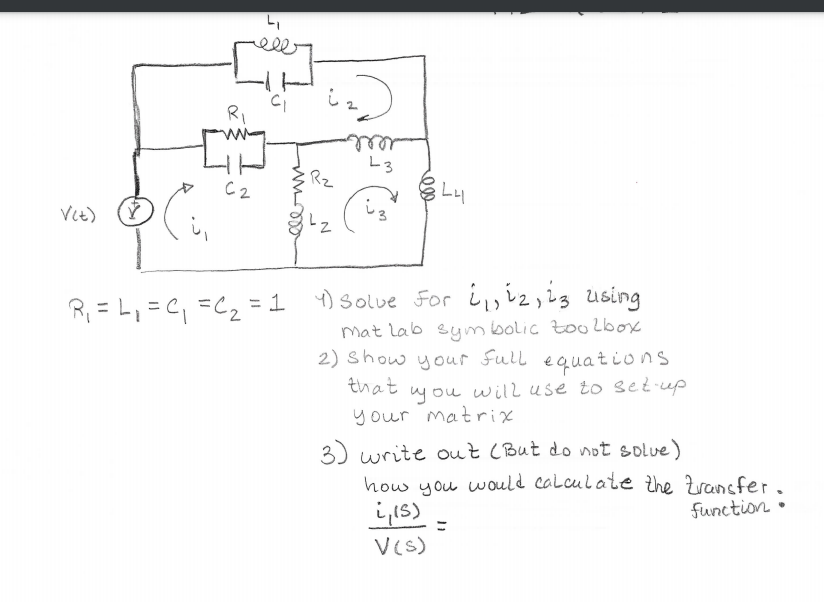 L1
C1
i2
R1
C2
L3
R2
L2
L4
V(t)
V
i1
i3
R1 = L1 = C1 = C2 = 1
1) Solve for i1, i2, i3 using
matlab symbolic toolbox
2) Show your full equations
that you will use to set-up
your matrix
3) write out (But do not solve)
how you would calculate the transfer.
function.
i1(S)
V(S)
=